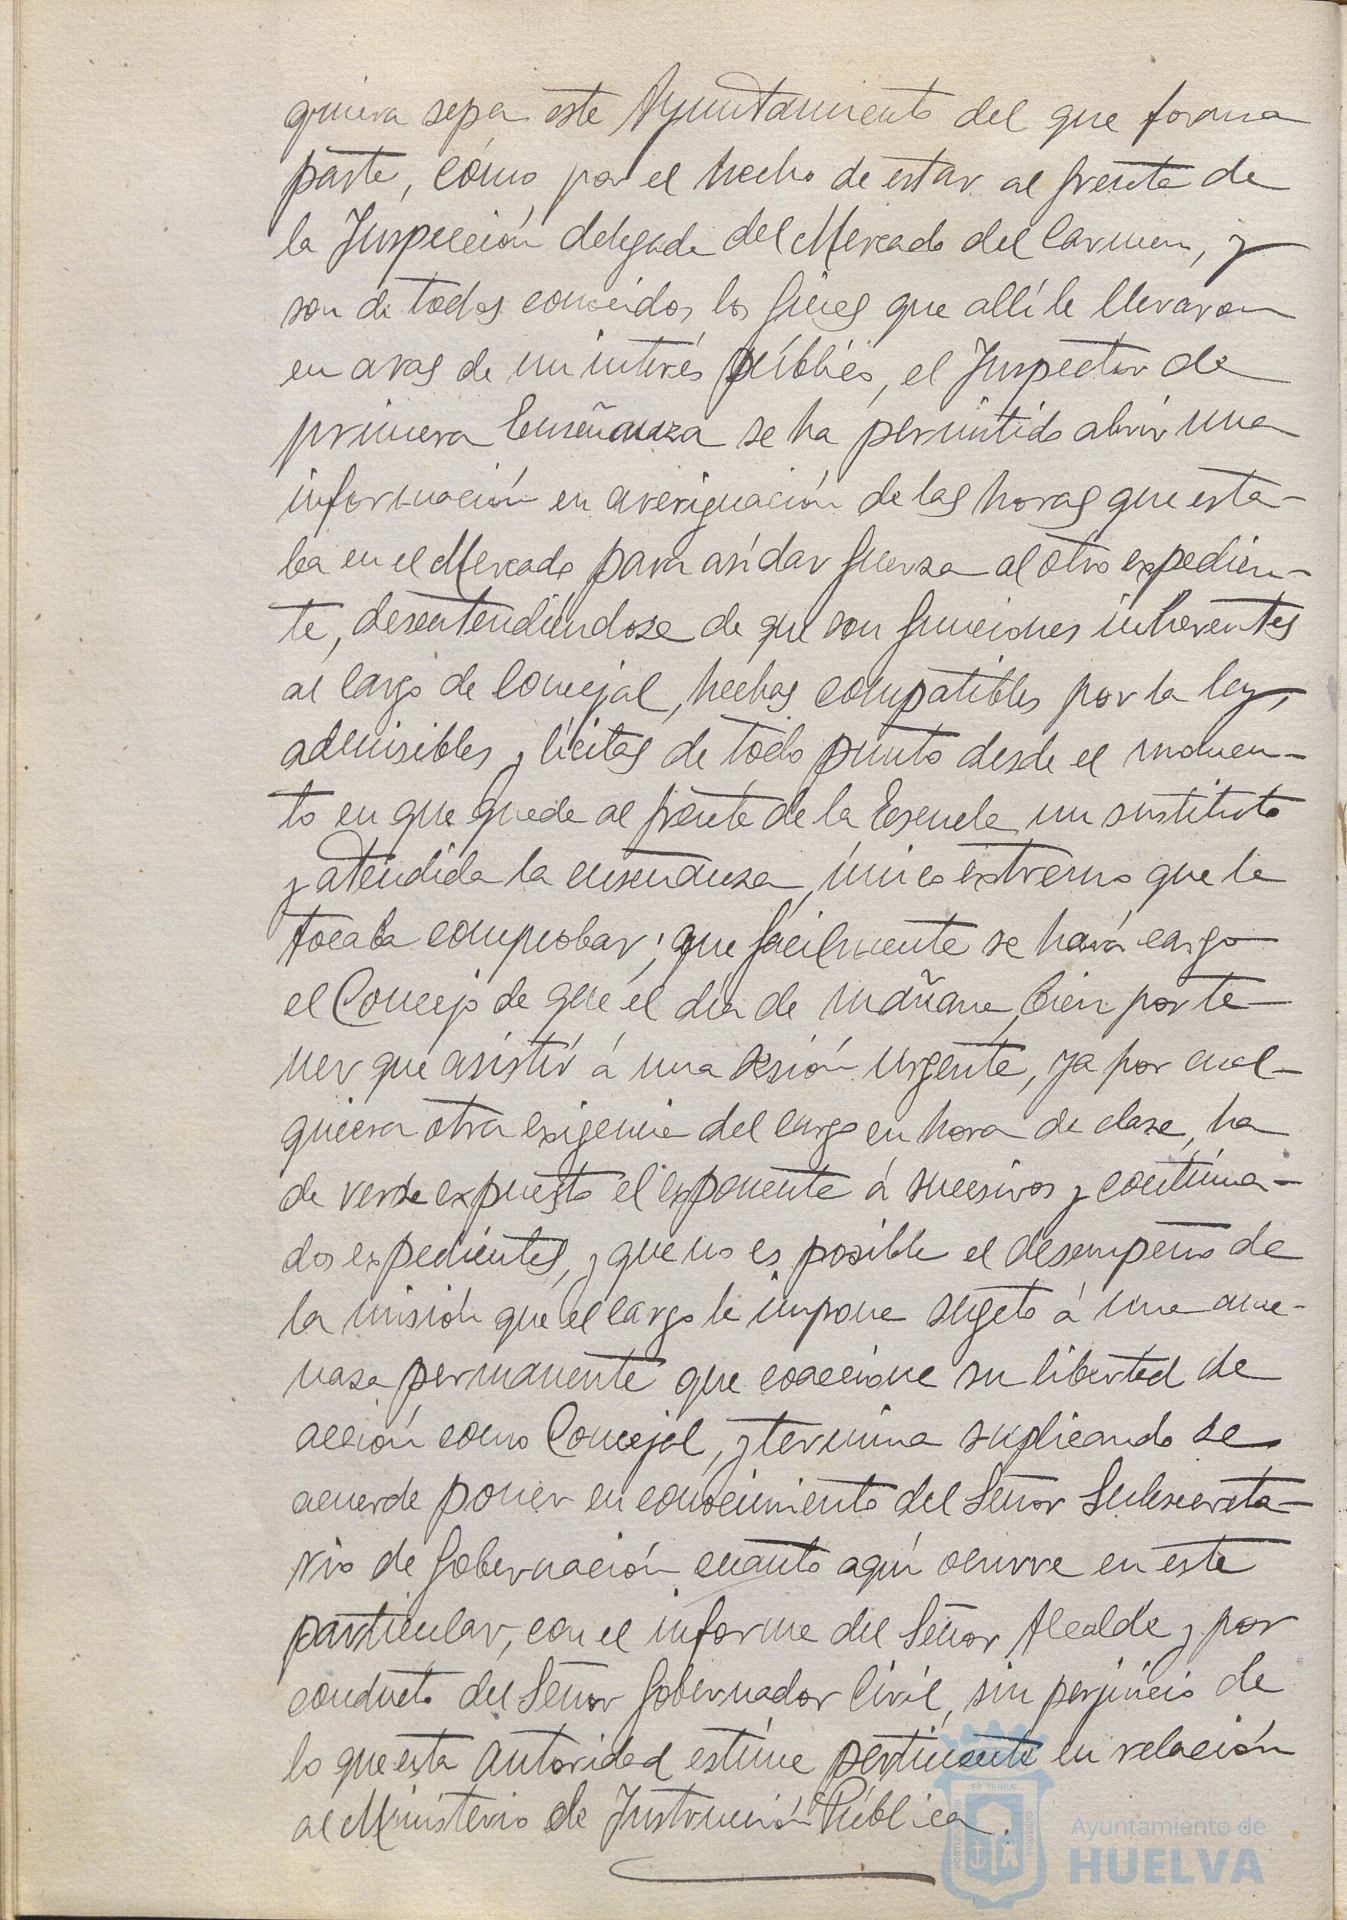 quiera sepa este Ayuntamiento del que forma
parte, cómo, por el hecho de estar al frente de
la Inspección delegada del Mercado del Carmen, y
son de todos conocidos los fines que allí le llevaron
en aras de un interés público, el Inspector de
primera Enseñanza se ha permitido abrir una
información en averiguación de las horas que esta-
ba en el Mercado para así dar fuerza al otro expedien-
te, desentendiéndose de que son funciones inherentes
al cargo de Concejal, hechas compatibles por la ley,
admisibles y lícitas de todo punto desde el momen-
to en que quede al frente de la Escuela un sustituto
y atendida la enseñanza, único extremo que le
tocaba comprobar; que fácilmente se hará cargo
el Concejo de que el día de mañana, bien por te-
ner que asistir á una sesión urgente, ya por cual-
quiera otra exigencia del cargo en hora de clase, ha
de verse expuesto el exponente á sucesivos y continua-
dos expedientes, y que no es posible el desempeño de
la misión que el cargo le impone sugeto á una ame-
naza permanente que coaccione su libertad de
acción como Concejal, y termina suplicando se
acuerde poner en conocimiento del Señor Subsecreta-
rio de Gobernación cuanto aquí ocurre en este
particular, con el informe del Señor Alcalde y por
conducto del Señor Gobernador Civil, sin perjuicio de
lo que esta autoridad estime pertinente en relación
al Ministerio de Instrucción Pública.
Ayuntamiento de
HUELVA